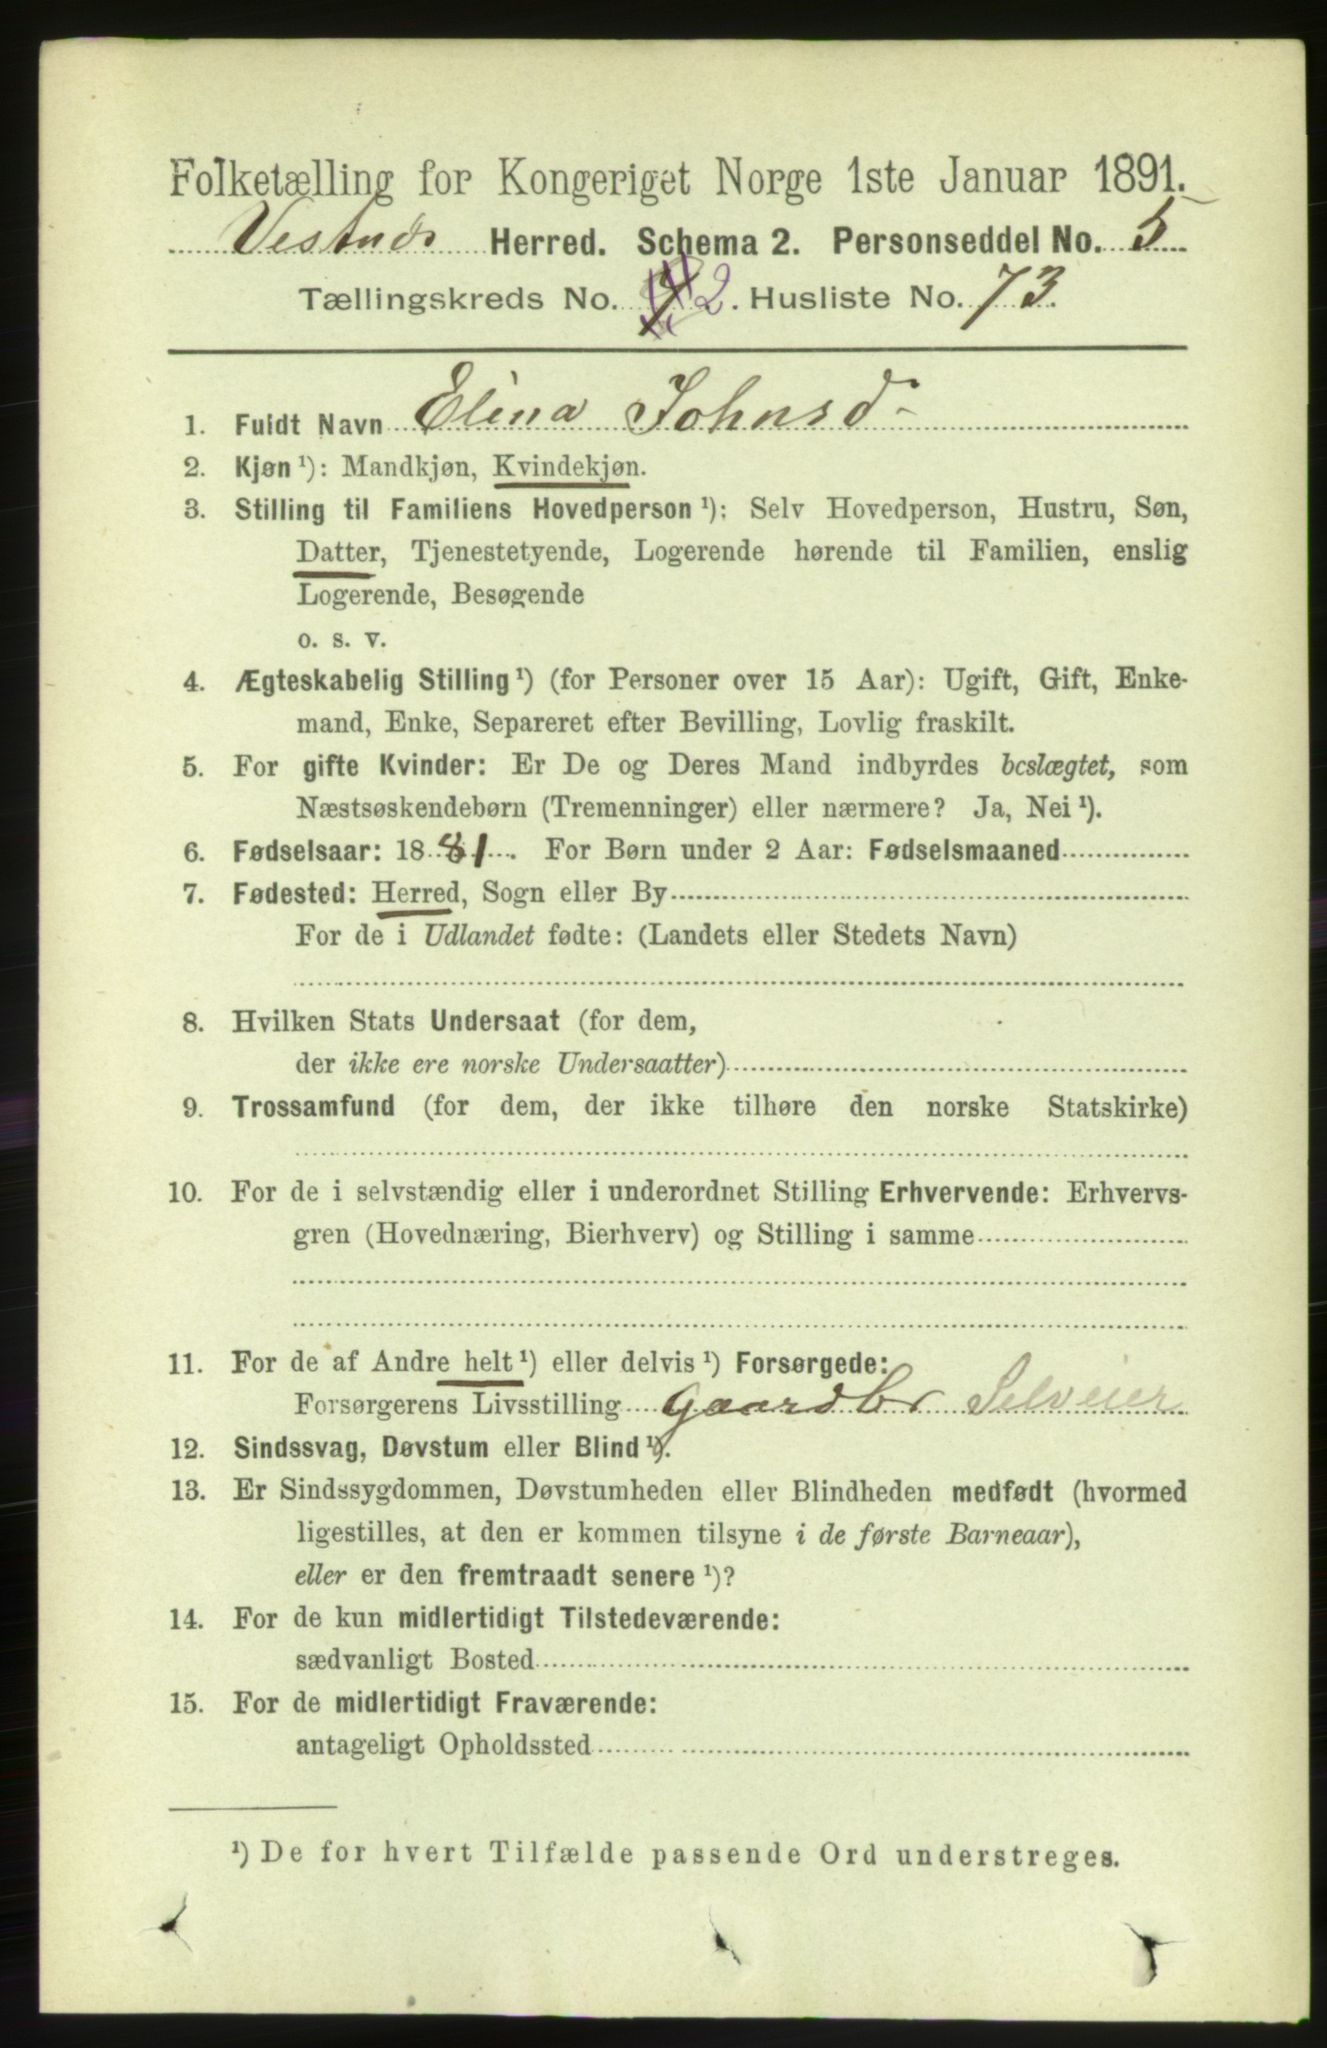 Folketælling for Kongeriget Norge 1ste Januar 1891.
Vestnæs Herred. Schema 2. Personseddel No. 5
Tællingskreds No. 2. Husliste No. 73.
1. Fuldt Navn Elina Johnsd-
2. Kjøn ¹): Mandkjøn, Kvindekjøn.
3. Stilling til Familiens Hovedperson ¹): Selv Hovedperson, Hustru, Søn,
Datter, Tjenestetyende, Logerende hørende til Familien, enslig
Logerende, Besøgende
o. s. v.
4. Ægteskabelig Stilling ¹) (for Personer over 15 Aar): Ugift, Gift, Enke-
mand, Enke, Separeret efter Bevilling, Lovlig fraskilt.
5. For gifte Kvinder: Er De og Deres Mand indbyrdes beslægtet, som
Næstsøskendebørn (Tremenninger) eller nærmere? Ja, Nei ¹).
6. Fødselsaar: 1881. For Børn under 2 Aar: Fødselsmaaned
7. Fødested: Herred, Sogn eller By
For de i Udlandet fødte: (Landets eller Stedets Navn)
8. Hvilken Stats Undersaat (for dem,
der ikke ere norske Undersaatter)
9. Trossamfund (for dem, der ikke tilhøre den norske Statskirke)
10. For de i selvstændig eller i underordnet Stilling Erhvervende: Erhvervs-
gren (Hovednæring, Bierhverv) og Stilling i samme
11. For de af Andre helt ¹) eller delvis ¹) Forsørgede:
Forsørgerens Livsstilling Gaardbr Selveier
12. Sindssvag, Døvstum eller Blind ¹).
13. Er Sindssygdommen, Døvstumheden eller Blindheden medfødt (hvormed
ligestilles, at den er kommen tilsyne i de første Barneaar),
eller er den fremtraadt senere ¹)?
14. For de kun midlertidigt Tilstedeværende:
sædvanligt Bosted
15. For de midlertidigt Fraværende:
antageligt Opholdssted
¹) De for hvert Tilfælde passende Ord understreges.